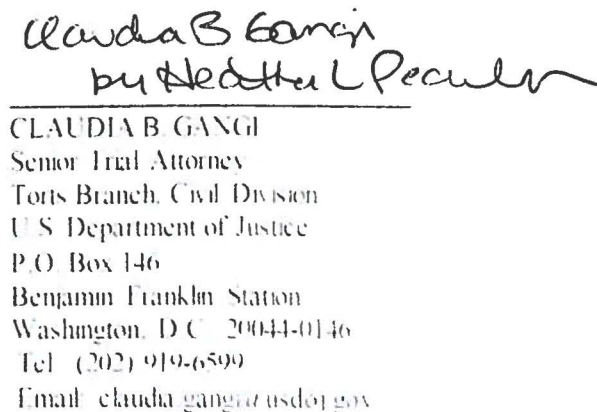 Claudia B Gangi
by Heather L Pearlman
CLAUDIA B. GANGI
Senior Trial Attorney
Torts Branch, Civil Division
U.S. Department of Justice
P.O. Box 146
Benjamin Franklin Station
Washington, D.C. 20044-0146
Tel: (202) 919-6599
Email: claudia.gangi@usdoj.gov